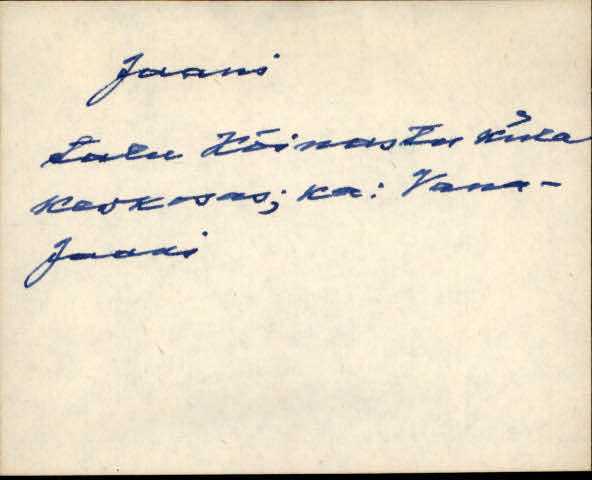 Jaani
talu Kõinastu küla
keskosas; ka: Vana-
Jaani